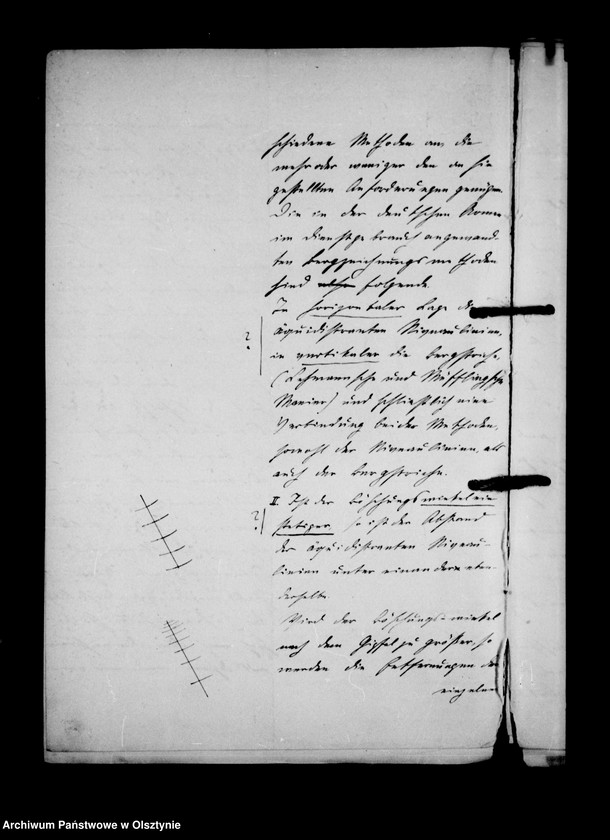 schiedene Methoden an, die
mehr oder weniger den an sie
gestellten Anforderungen genügen.
Die in der deutschen Armee
im Dienstgebrauch angewand-
ten Bergzeichnungsmethoden
sind folgende.
In horizontaler Lage die
äquidistanten Niveaulinien,
?
in vertikaler die Bergstriche,
(Lehmannsche und Müfflingsche
Manier) und schließlich eine
Verbindung beider Methoden,
sowohl der Niveaulinien, als
auch der Bergstriche.
II. Ist der Böschungswinkel ein
?
stetiger so ist der Abstand
der äquidistanten Niveau-
linien unter einander eben
derselbe.
Wird der Böschungs-winkel
nach dem Gipfel zu größer, so
werden die Entfernungen der
einzelnen
Archiwum Państwowe w Olsztynie